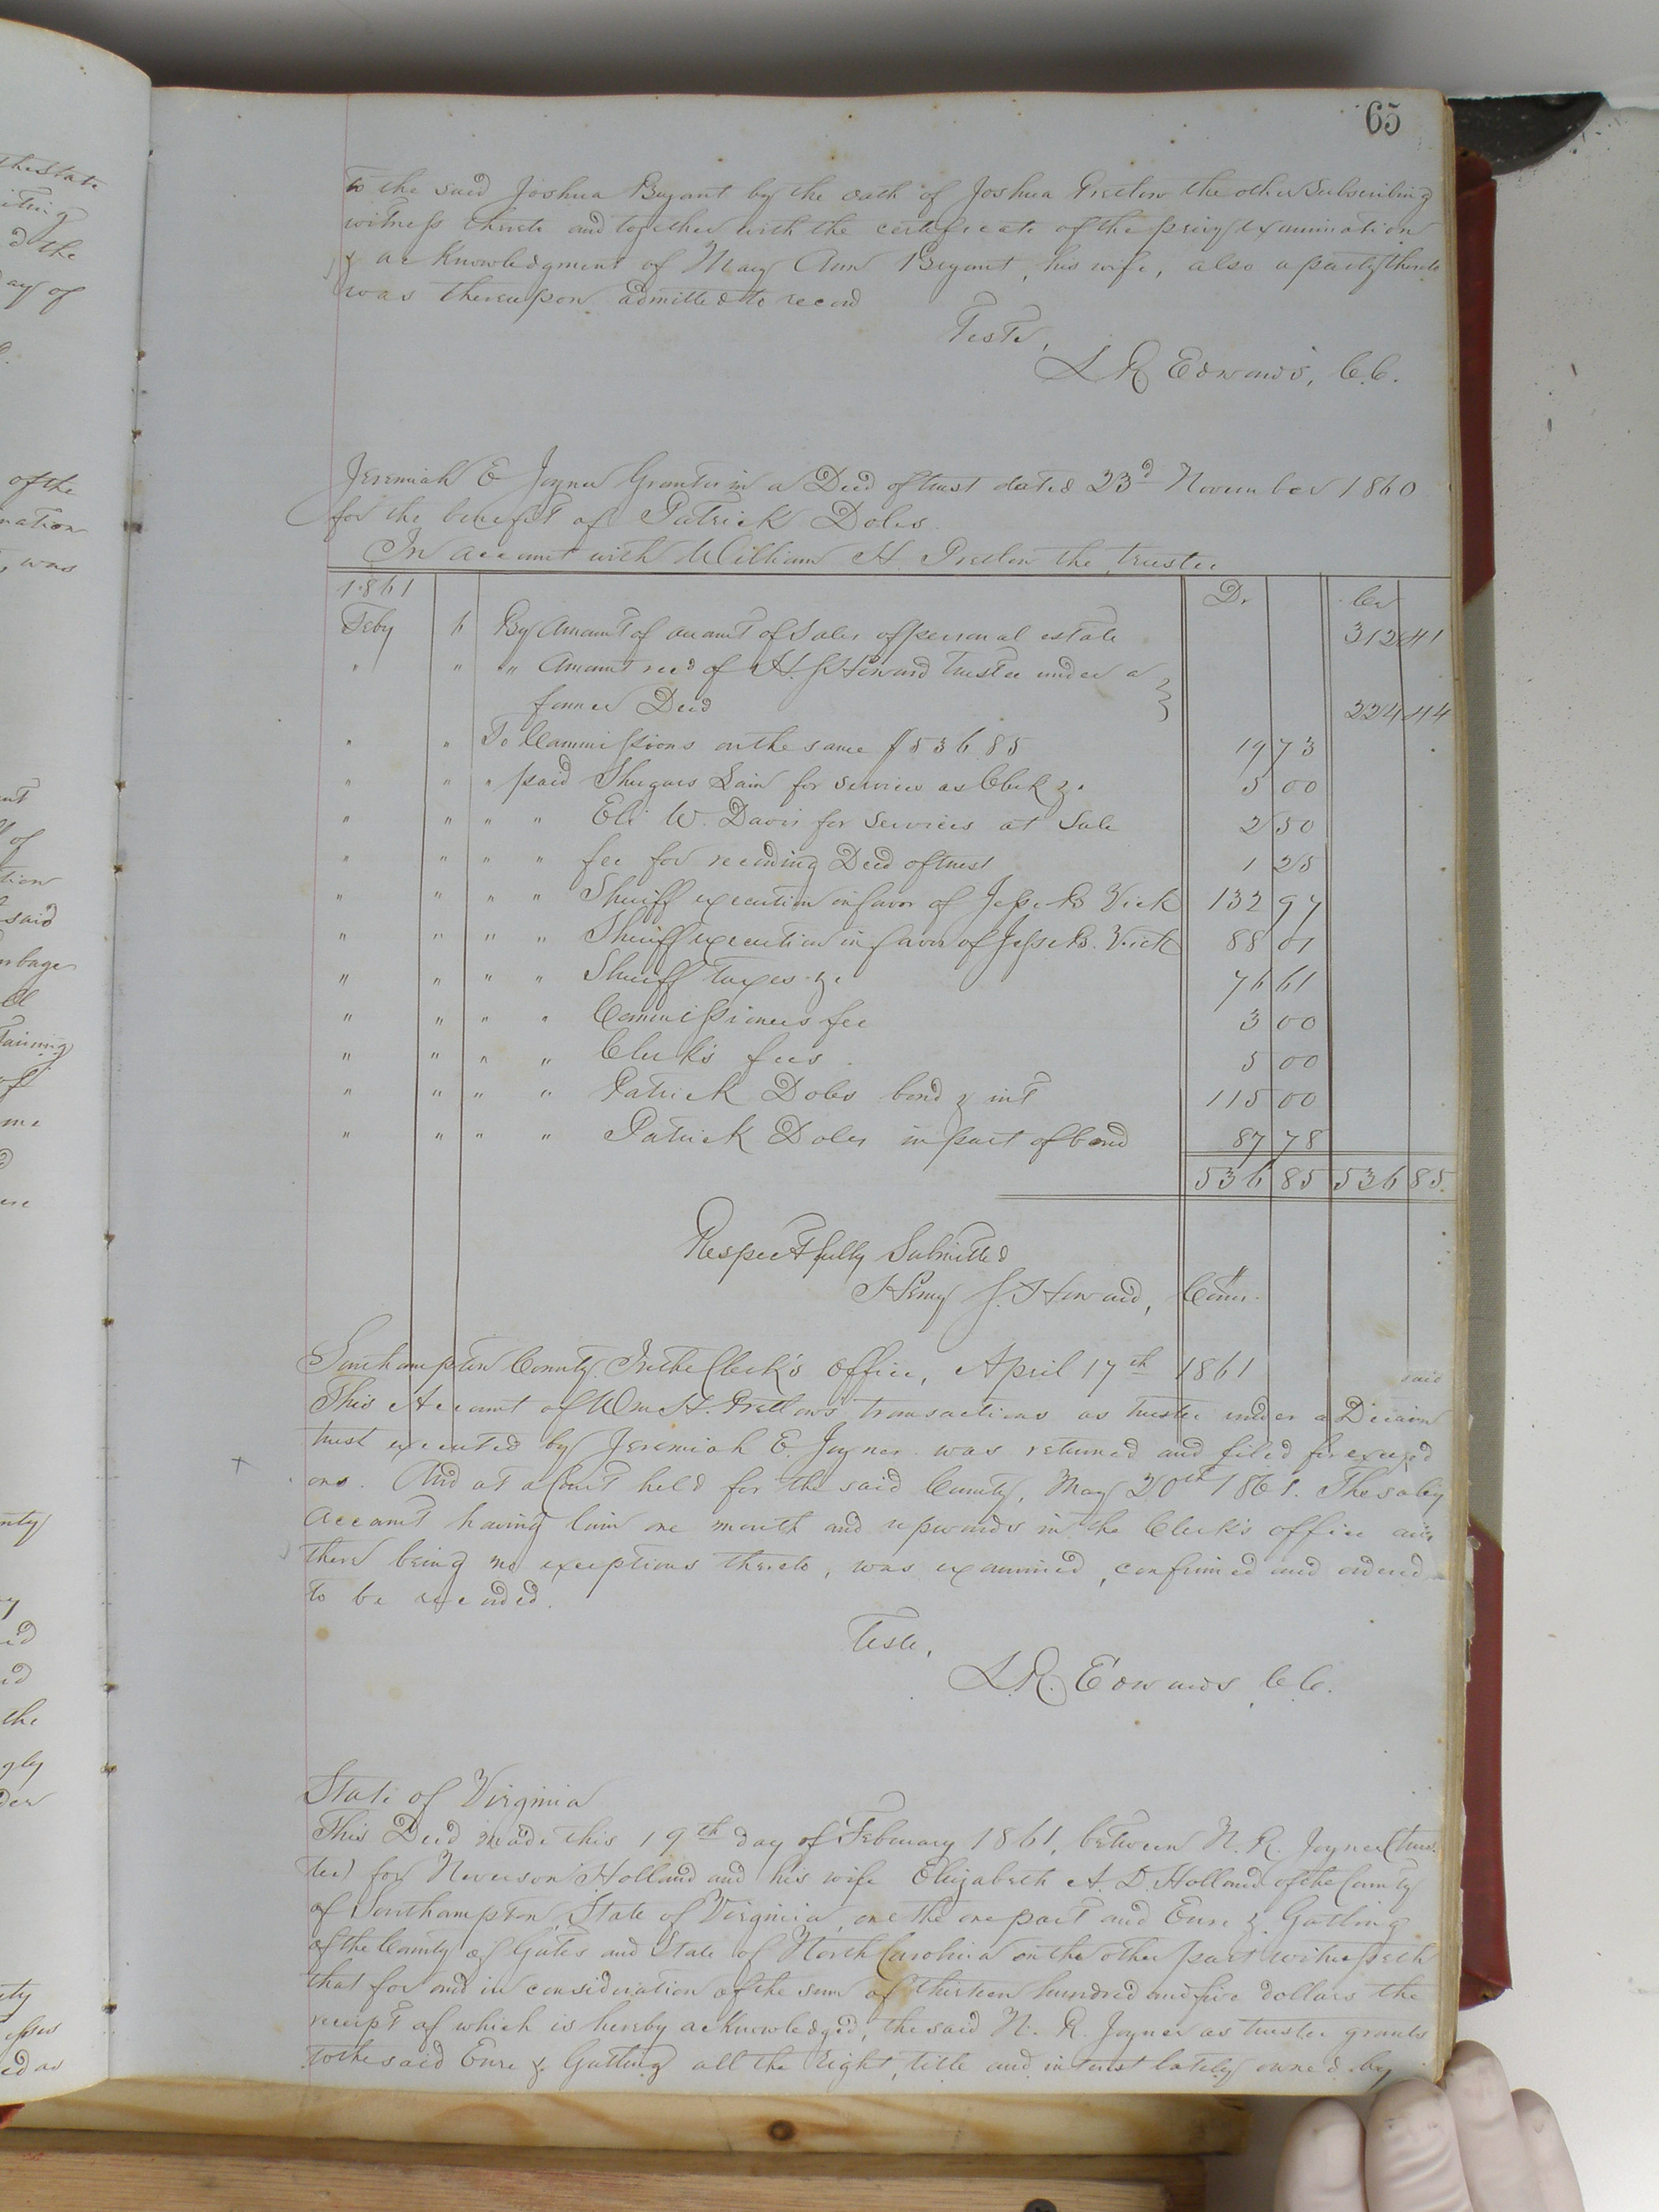 65
to the said Joshua Bryant by the oath of Joshua Pretlow the other Subscribing
witness thereto and together with the certificate of the privy examination
& acknowledgment of Mary Ann Bryant, his wife, also a party thereto
was thereupon admitted to record
Teste,
L R Edwards, C.C.
Jeremiah E Joyner Grantor in a Deed of trust dated 23d November 1860
for the benefit of Patrick Doles
In account with William H. Pretlow the trustee
1861 Dr Cr
Feby 6 By Amount of account of Sales of personal estate 312 41
" " " Amount recd of H. J. Howard trustee under a
former Deed 224 44
" " To Commissions on the same $536 85 19 73
" " " paid Shugars Lain for services as Clerk &c 5 00
" " " " Eli W. Davis for Services at Sale 2 50
" " " " fee for recording Deed of trust 1 25
" " " " Sheriff execution in favor of Jesse B Vick 132 97
" " " " Sheriff execution in favor of Jesse B. Vick 88 01
" " " " Sheriff Taxes &c 76 61
" " " " Commissioners fee 3 00
" " " " Clerk's fees 5 00
" " " " Patrick Doles bond & int 115 00
" " " " Patrick Doles in part of bond 87 78
536 85 536 85
Respectfully Submitted
Henry J. Howard, Comr.
Southampton County. In the Clerk's office, April 17th 1861
said
This Account of Wm H. Pretlow's transactions as trustee under a Deed
trust executed by Jeremiah E. Joyner was returned and filed for
ons. And at a Court held for the said County, May 20th 1861. The
Account having lain one month and upwards in the Clerk's office
there being no exceptions thereto, was examined, confirmed and ordered
to be recorded.
Teste,
L.R. Edwards C.C.
State of Virginia
This Deed made this 19th day of February 1861, between N. R. Joyner (trus
tee) for Neverson Holland and his wife Elizabeth A. D. Holland of the County
of Southampton, State of Virginia, one the one part and Eure & Gatling
of the County of Gates and State of North Carolina on the other part witnesseth
that for and in consideration of the sum of thirteen hundred and five dollars the
receipt of which is hereby acknowledged, the said N. R. Joyner as trustee grants
to the said Eure & Gatling all the Right, title and interest lately owned by